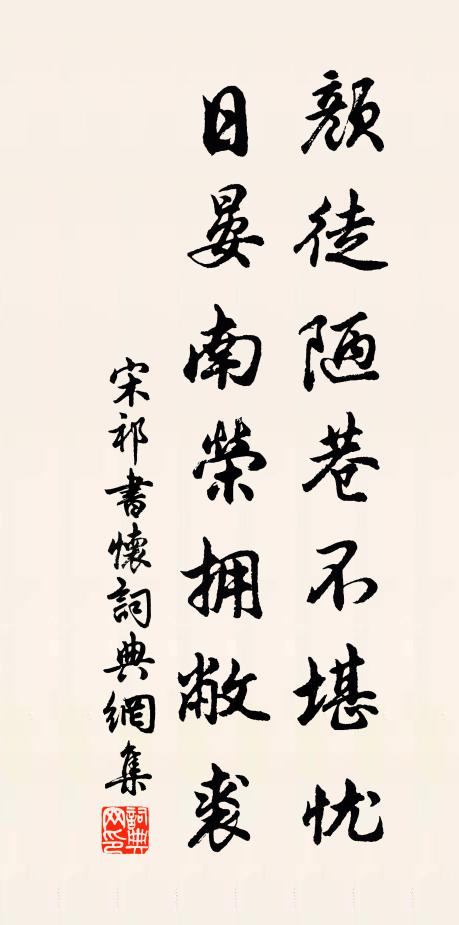 顏徒陋巷不堪忧
日晏南榮拥敝裘
宋祁書懷詞典網集
詞典网印